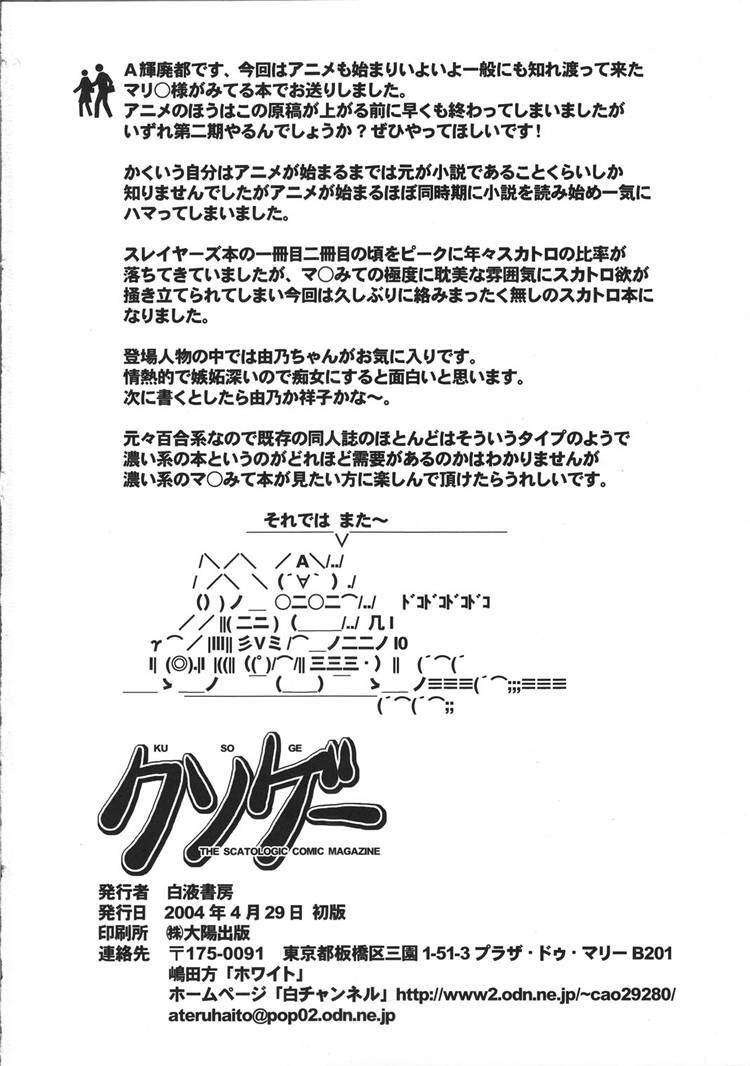 A輝廃都です、今回はアニメも始まりいよいよ一般にも知れ渡って来た
マリ〇様がみてる本でお送りしました。
アニメのほうはこの原稿が上がる前に早くも終わってしまいましたが
いずれ第二期やるんでしょうか？ぜひやってほしいです！
かくいう自分はアニメが始まるまでは元が小説であることくらいしか
知りませんでしたがアニメが始まるほぼ同時期に小説を読み始め一気に
ハマってしまいました。
スレイヤーズ本の一冊目二冊目の頃をピークに年々スカトロの比率が
落ちてきていましたが、マ〇みての極度に耽美な雰囲気にスカトロ欲が
掻き立てられてしまい今回は久しぶりに絡みまったく無しのスカトロ本に
なりました。
登場人物の中では由乃ちゃんがお気に入りです。
情熱的で嫉妬深いので痴女にすると面白いと思います。
次に書くとしたら由乃か祥子かな〜。
元々百合系なので既存の同人誌のほとんどはそういうタイプのようで
濃い系の本というのがどれほど需要があるのかはわかりませんが
濃い系のマ〇みて本が見たい方に楽しんで頂けたらうれしいです。
それでは また〜
ﾄﾞｺﾄﾞｺﾄﾞｺﾄﾞｺ
KU SO GE
クソゲー
THE SCATOLOGIC COMIC MAGAZINE
発行者 白液書房
発行日 2004年4月29日 初版
印刷所 ㈱大陽出版
連絡先 〒175-0091 東京都板橋区三園1-51-3プラザ・ドゥ・マリーB201
嶋田方「ホワイト」
ホームページ「白チャンネル」http://www2.odn.ne.jp/~cao29280/
ateruhaito@pop02.odn.ne.jp